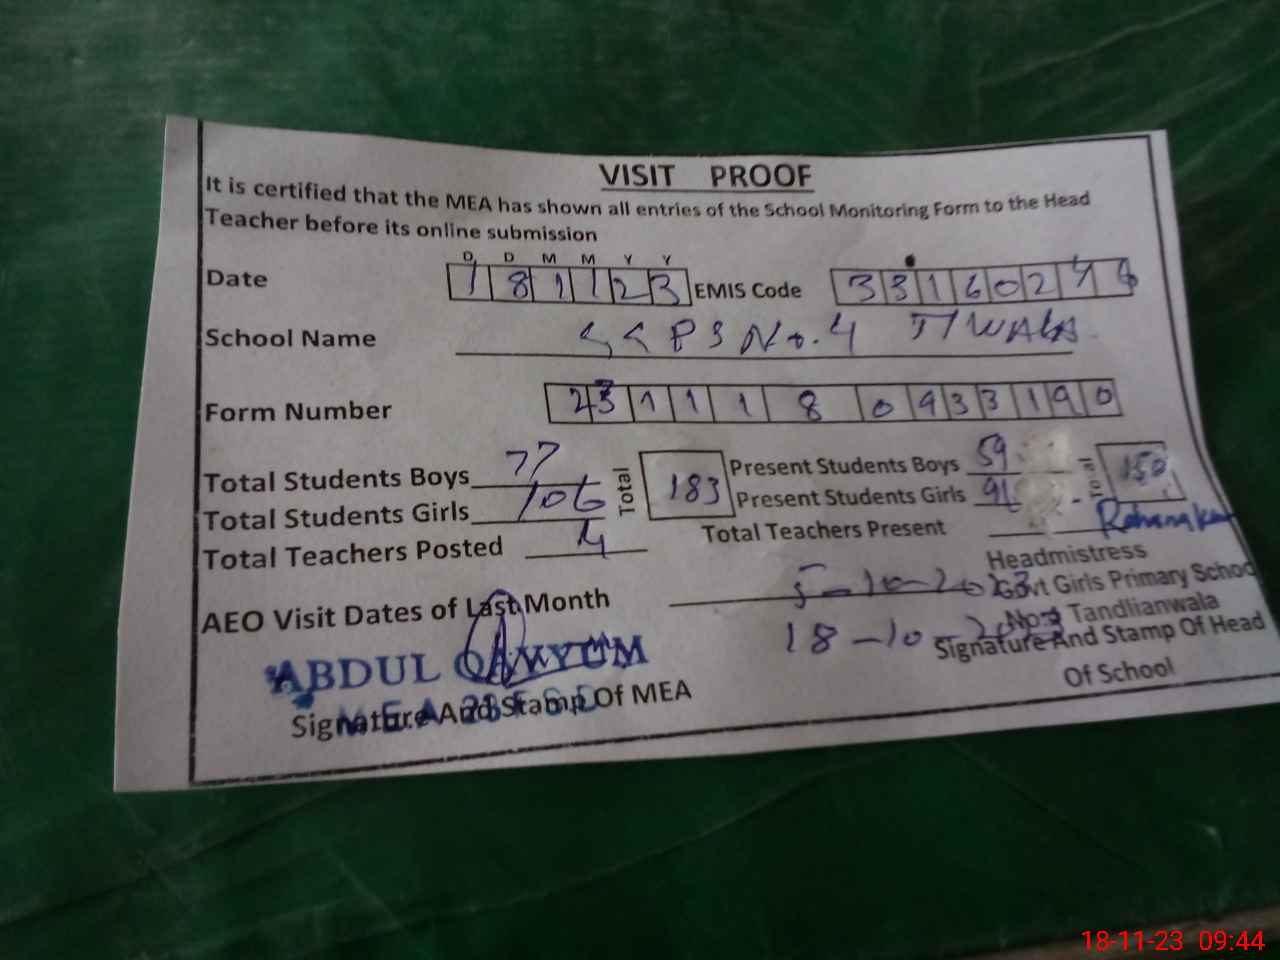 VISIT PROOF
It is certified that the MEA has shown all entries of the School Monitoring Form to the Head
Teacher before its online submission
D D M M Y Y
Date 181123 EMIS Code 331602
School Name PS No. 4 T/WALA
Form Number 23 1 1 1 8 0 9 3 3 1 9 0
Total Students Boys 77 Total 183 Present Students Boys 59 Total 150
Total Students Girls 106 Present Students Girls 91
Total Teachers Posted 4 Total Teachers Present
Headmistress
AEO Visit Dates of Last Month 5-10-2023 Govt Girls Primary School
18-10-2023 No. Tandlianwala
ABDUL QAYYUM Signature And Stamp Of Head
Signature And Stamp Of MEA Of School
MEA
18-11-23 09:44